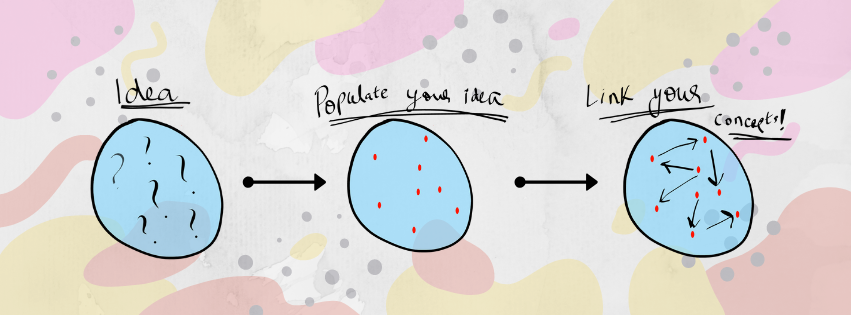 Idea
Populate your idea
Link your
concepts!
? ? ? ? ? ? ?